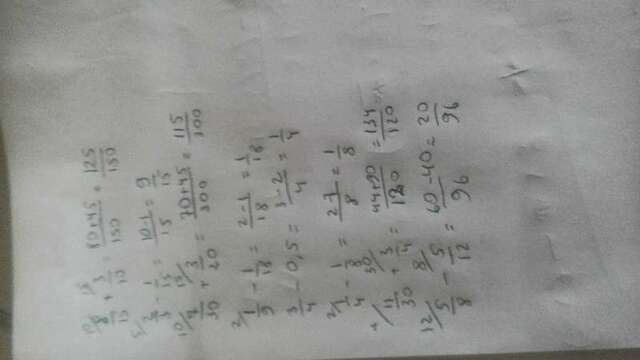 10/ 8/15 + 15/ 3/10 = 80+45/150 = 125/150
5/ 2/3 - 1/15 = 10-1/15 = 9/15
10/ 7/30 + 15/ 3/20 = 70+45/300 = 115/300
2/ 1/9 - 1/18 = 2-1/18 = 1/18
3/4 - 0,5 = 3-2/4 = 1/4
2/ 1/4 - 1/8 = 27/8 = 1/8
4/ 11/30 + 30/ 3/4 = 44+90/120 = 134/120
12/ 5/8 - 8/ 5/12 = 60-40/96 = 20/96